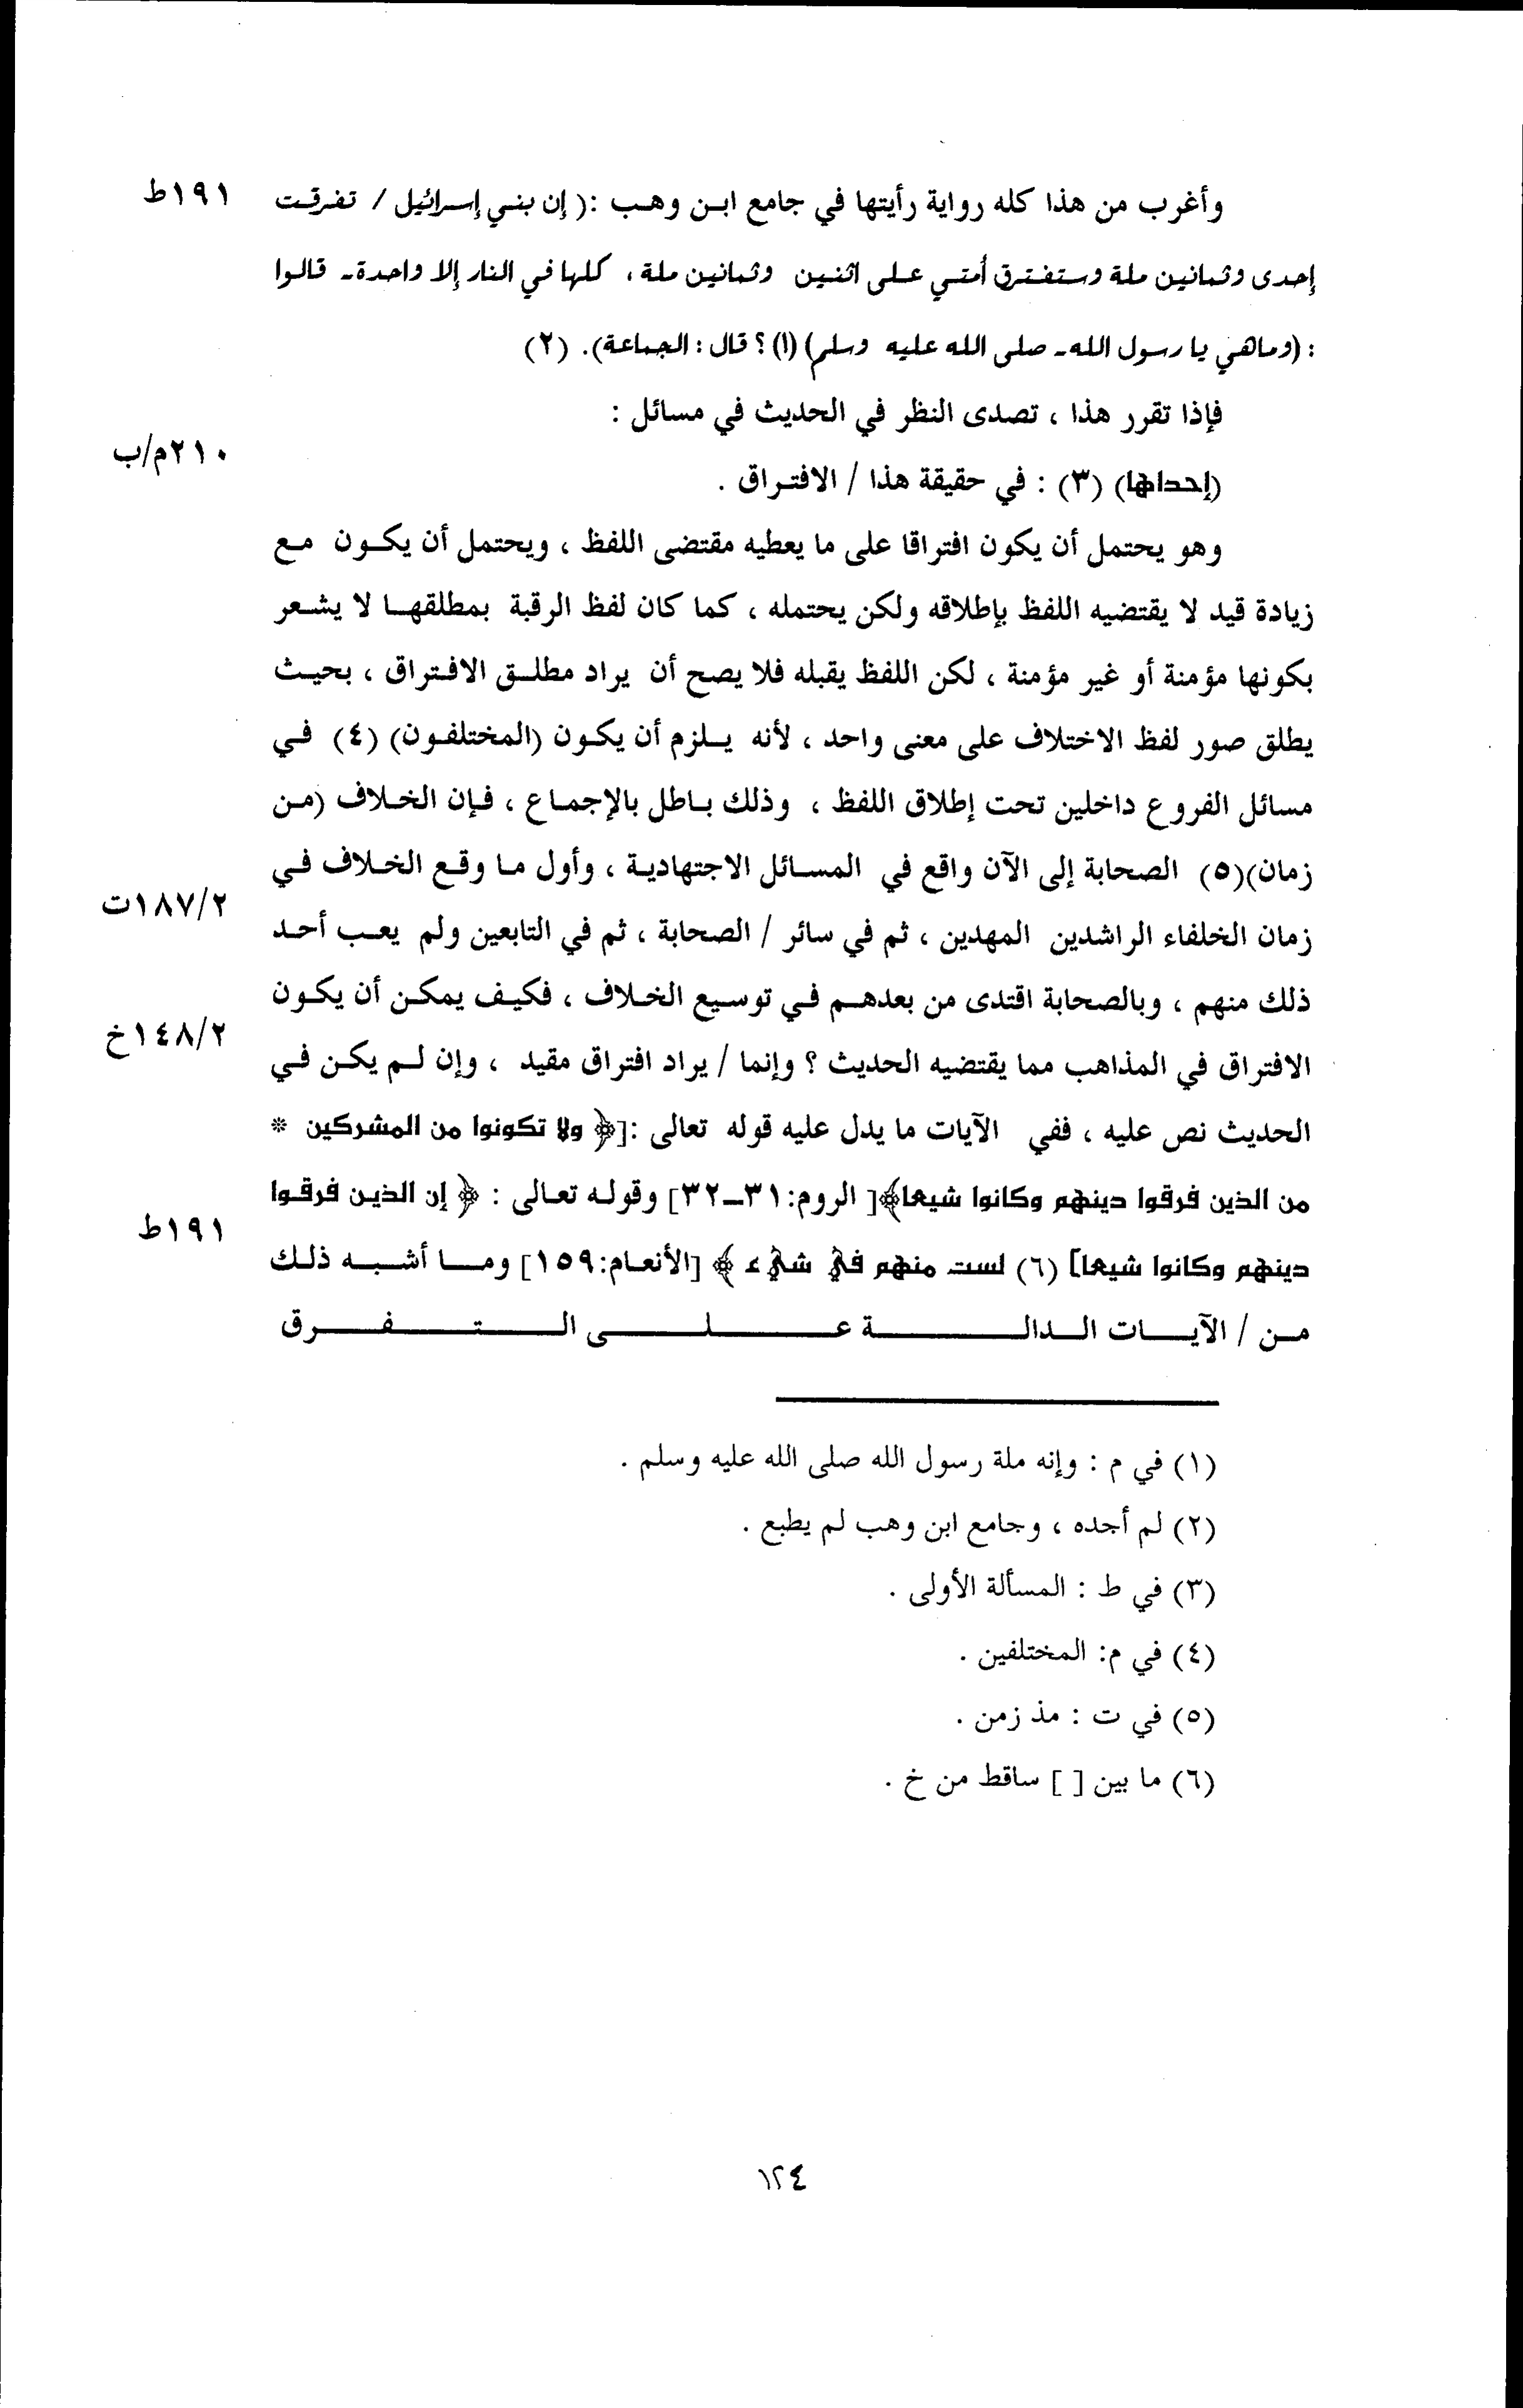 وأغرب من هذا كله رواية رأيتها في جامع ابن وهب :( إن بني إسرائيل / تفرقت
١٩١ط
إحدى وثمانين ملة وستفترق أمتي على اثنين وثمانين ملة ، كلها في النار إلا واحدة- قالوا
: (وماهي يا رسول الله- صلى الله عليه وسلم) (١) ؟ قال : الجماعة). (٢)
فإذا تقرر هذا ، تصدى النظر في الحديث في مسائل :
٢١٠م/ب
(إحداها) (٣) : في حقيقة هذا / الافتراق .
وهو يحتمل أن يكون افتراقا على ما يعطيه مقتضى اللفظ ، ويحتمل أن يكون مع
زيادة قيد لا يقتضيه اللفظ بإطلاقه ولكن يحتمله ، كما كان لفظ الرقبة بمطلقها لا يشعر
بكونها مؤمنة أو غير مؤمنة ، لكن اللفظ يقبله فلا يصح أن يراد مطلق الافتراق ، بحيث
يطلق صور لفظ الاختلاف على معنى واحد ، لأنه يلزم أن يكون (المختلفون) (٤) في
مسائل الفروع داخلين تحت إطلاق اللفظ ، وذلك باطل بالإجماع ، فإن الخلاف (من
زمان)(٥) الصحابة إلى الآن واقع في المسائل الاجتهادية ، وأول ما وقع الخلاف في
١٨٧/٢ت
زمان الخلفاء الراشدين المهدين ، ثم في سائر / الصحابة ، ثم في التابعين ولم يعب أحد
ذلك منهم ، وبالصحابة اقتدى من بعدهم في توسيع الخلاف ، فكيف يمكن أن يكون
١٤٨/٢خ
الافتراق في المذاهب مما يقتضيه الحديث ؟ وإنما / يراد افتراق مقيد ، وإن لم يكن في
الحديث نص عليه ، ففي الآيات ما يدل عليه قوله تعالى :[﴿ ولا تكونوا من المشركين *
من الذين فرقوا دينهم وكانوا شيعا﴾[ الروم:٣١-٣٢] وقوله تعالى : ﴿ إن الذين فرقوا
١٩١ط
دينهم وكانوا شيعا] (٦) لست منهم في شيء ﴾ [الأنعام:١٥٩] وما أشبه ذلك
من / الآيات الدالة على التفرق
(١) في م : وإنه ملة رسول الله صلى الله عليه وسلم .
(٢) لم أجده ، وجامع ابن وهب لم يطبع .
(٣) في ط : المسألة الأولى .
(٤) في م: المختلفين .
(٥) في ت : مذ زمن .
(٦) ما بين [ ] ساقط من خ .
١٢٤